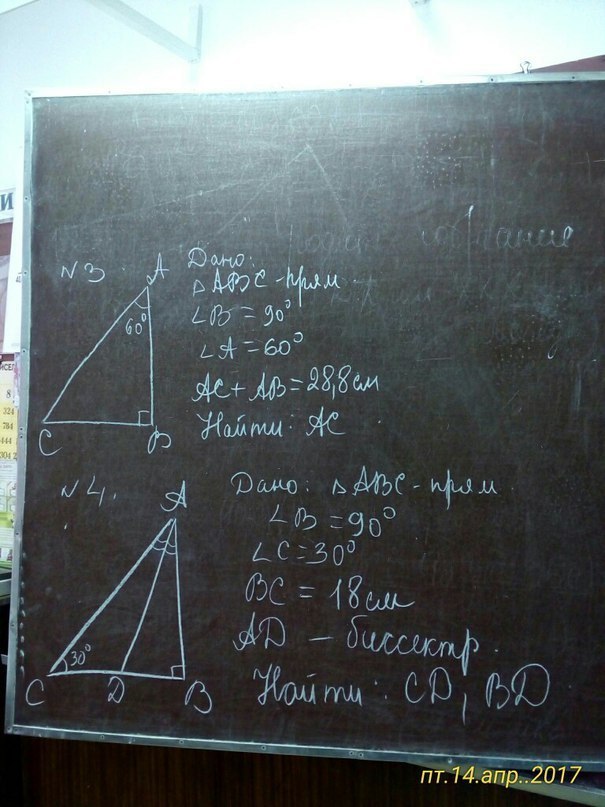 №3.
A
60°
C
B
Дано:
△ABC - прям.
∠B = 90°
∠A = 60°
AC + AB = 28,8 см
Найти: AC
№4.
A
30°
C
D
B
Дано: △ABC - прям.
∠B = 90°
∠C = 30°
BC = 18 см
AD - биссектр.
Найти: CD, BD
И
324
784
444
304 2
пт.14.апр..2017